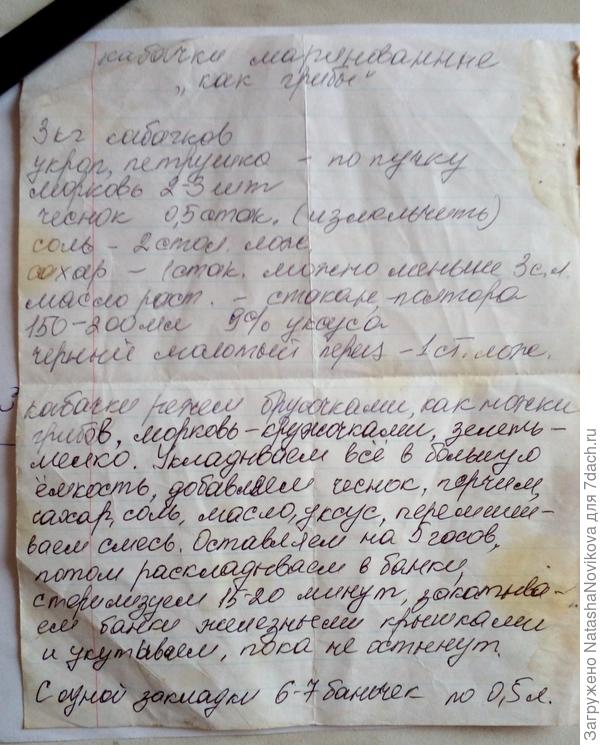 кабачки маринованные
„как грибы"
3 кг кабачков
укроп, петрушка - по пучку
морковь 2-3 шт
чеснок 0,5 стак. (измельчить)
соль - 2 стол. лож.
сахар - 1 стак. можно меньше 3 с.л.
масло раст. - стакан, полтора
150-200 мл 9% уксуса
черный молотый перец - 1 ст. лож.
кабачки режем брусочками, как ножки
грибов, морковь-кружочками, зелень-
мелко. Укладываем всё в большую
ёмкость, добавляем чеснок, перчим,
сахар, соль, масло, уксус, перемеши-
ваем смесь. Оставляем на 5 часов,
потом раскладываем в банки,
стерилизуем 15-20 минут, закатыва-
ем банки железными крышками
и укутываем, пока не остынут.
С одной закладки 6-7 баночек по 0,5 л.
Загружено NatashaNovikova для 7dach.ru